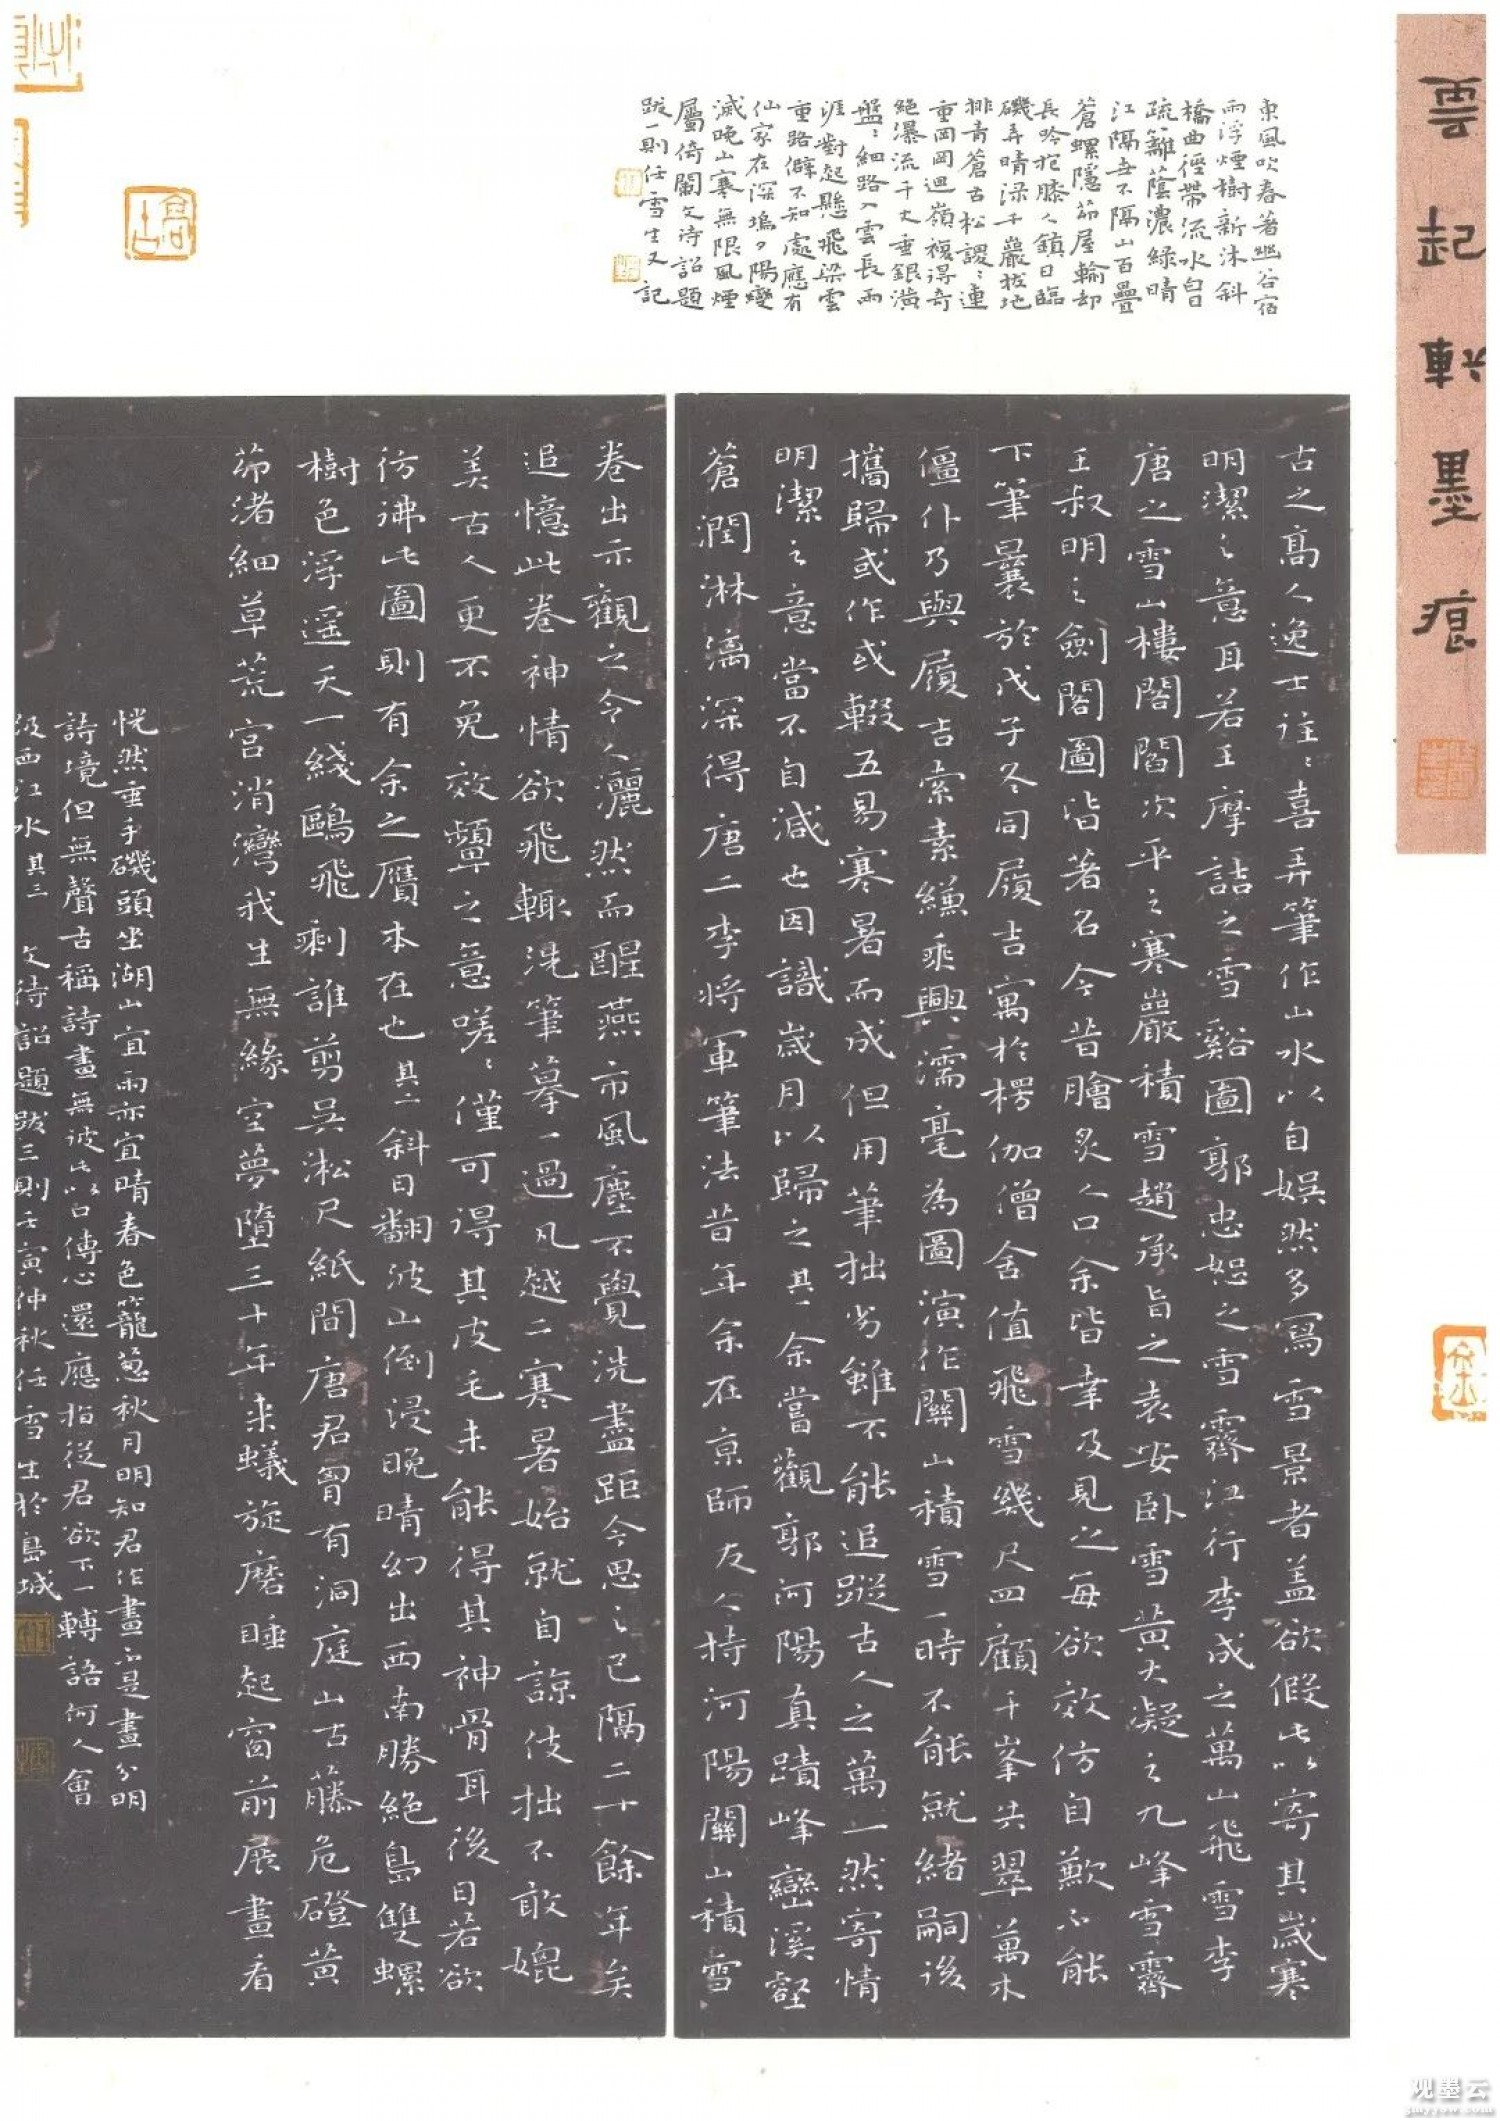 雲起軒墨痕
東風吹春著幽谷宿
雨浮煙樹新沐斜
橋曲徑帶流水白日
疏籬蔭濃綠晴
江隔岸不隔山百疊
蒼螺隱茆屋輸却
長吟抱膝人鎮日臨
磯弄晴淥千巖拔地
排青蒼古松謖〻連
重岡岡迴嶺複得奇
絕瀑流千丈垂銀潢
盤〻細路入雲長兩
涯對起懸飛梁雲
重路僻不知處應有
仙家在深塢夕陽變
滅晚山寒無限風煙
屬倚闌文待詔題
跋一則任雪生又記
古之高人逸士往〻喜弄筆作山水以自娛然多寫雪景者蓋欲假此以寄其歲寒
明潔之意耳若王摩詰之雪谿圖郭忠恕之雪霽江行李成之萬山飛雪李
唐之雪山樓閣閻次平之寒巖積雪趙承旨之袁安臥雪黃大凝之九峰雪霽
王叔明之劍閣圖皆著名今昔膾炙人口余皆幸及見之每欲效仿自歉不能
下筆曩於戊子冬同履吉寓於楞伽僧舍值飛雪幾尺四顧千峯失翠萬木
僵仆乃與履吉索素縑乘興濡毫為圖演作關山積雪一時不能就緒嗣後
攜歸或作或輟五易寒暑而成但用筆拙劣雖不能追蹤古人之萬一然寄情
明潔之意當不自減也因識歲月以歸之其一余嘗觀郭河陽真蹟峰巒溪壑
蒼潤淋漓深得唐二李將軍筆法昔年余在京師友人持河陽關山積雪
卷出示觀之令人灑然而醒燕市風塵不覺洗盡距今思之已隔二十餘年矣
追憶此卷神情欲飛輒洗筆摹一過凡越二寒暑始就自諒伎拙不敢媲
美古人更不免效顰之意嗟〻僅可得其皮毛未能得其神骨耳後日若欲
彷彿此圖則有余之贗本在也其二斜日翻波山倒浸晚晴幻出西南勝絕島雙螺
樹色浮遥天一綫鷗飛剩誰剪吳淞尺紙間唐君胷有洞庭山古藤危磴黃
茆渚細草荒宮消灣我生無緣空夢墮三十年来蟻旋磨睡起窗前展畫看
恍然垂手磯頭坐湖山宜雨亦宜晴春色籠葱秋月明知君作畫不是畫分明
詩境但無聲古稱詩畫無彼此以口傳心還應指從君欲下一轉語何人會
汲西江水其三 文待詔題跋三則壬寅仲秋任雪生於島城
观墨云